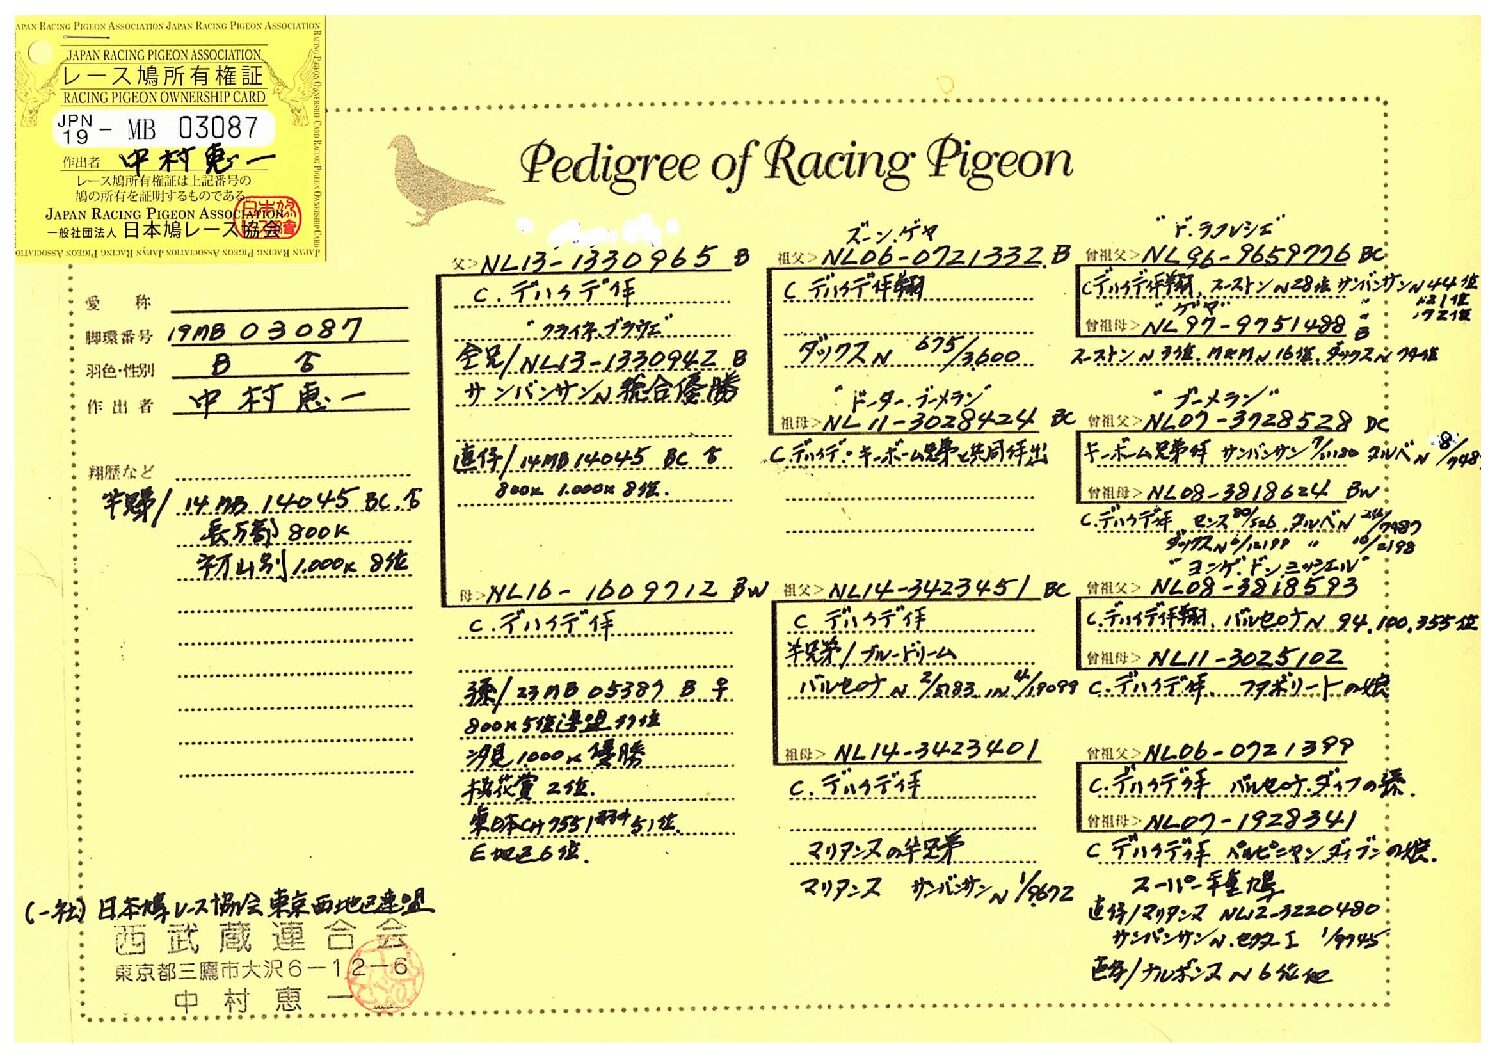 JAPAN RACING PIGEON ASSOCIATION JAPAN RACING PIGEON ASSOCIATION
JAPAN RACING PIGEON ASSOCIATION
レース鳩所有権証
RACING PIGEON OWNERSHIP CARD
JPN 19 - MB 03087
作出者 中村恵一
レース鳩所有権証は上記番号の
鳩の所有を証明するものである。
JAPAN RACING PIGEON ASSOCIATION
一般社団法人 日本鳩レース協会
Pedigree of Racing Pigeon
愛称
脚環番号 19MB 03087
羽色・性別 B ♂
作出者 中村恵一
翔歴など
半兄弟/14MB 14045 BC.♂
800K
1.000K 8位
父> NL13-1330965 B
C.デハイデ作
全兄/NL13-1330942 B
サンバンサンN総合優勝
直仔/14MB14045 BC ♂
800K 1.000K 8位.
母> NL16-1609712 BW
C.デハイデ作
孫/23MB 05387 B ♀
800K5位連盟
汐見1000K優勝
桜花賞2位.
東日本CH 51位.
E地区6位.
ズーン.ゲヤ
祖父> NL06-0721332.B
C デハイデ作翔
ダックスN 675/3,600
"ドーター.ブーメラン"
祖母> NL11-3028424 BC
C.デハイデ・キーボーム兄弟と共同作出
祖父> NL14-3423451 BC
C デハイデ作
半兄弟/ブルードリーム
バルセロナN 2/5183 IN 4/19099
祖母> NL14-3423401
C.デハイデ作
マリアンヌの半兄弟
マリアンヌ サンバンサンN 1/9672
"ド.ラフレシェ"
曾祖父> NL96-9659776 BC
C デハイデ作翔. スーストンN28位 サンバンサンN44位
"ゲヤ"
曾祖母> NL97-9751488 B
"ブーメラン"
曾祖父> NL07-3728528 DC
キーボーム兄弟作 サンバンサン
曾祖母> NL08-3818624 BW
C.デハイデ作
曾祖父> NL08-3818593
C.デハイデ作翔. バルセロナN 94.100.355位
曾祖母> NL11-3025102
C.デハイデ作. ファボリートの娘
曾祖父> NL06-0721399
C.デハイデ作 バルセロナ.ダイフの孫.
曾祖母> NL07-1928341
C デハイデ作 ペルピニャン の娘.
スーパー種鳩
直仔/マリアンヌ NL12-3220480
サンバンサンN.セクターI 1/9745
直仔/ナルボンヌN 6位他
(一社)日本鳩レース協会東京西地区連盟
西武蔵連合会
東京都三鷹市大沢6-12-6
中村恵一